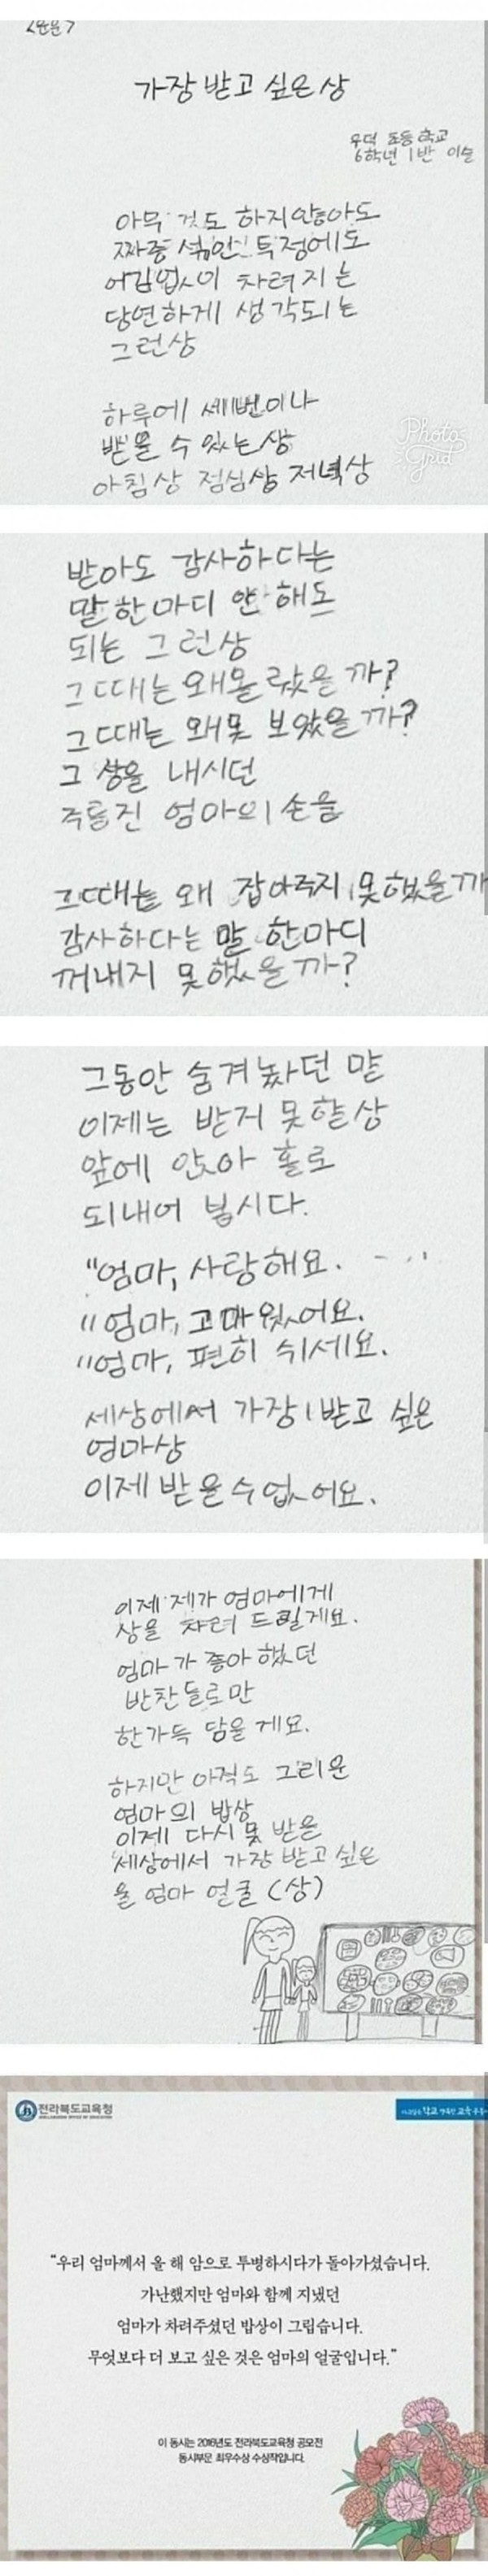 <운문>
가장 받고 싶은 상
우덕 초등학교
6학년 1반 이슬
아무 것도 하지 않아도
짜증 섞인 투정에도
어김없이 차려지는
당연하게 생각되는
그런상
하루에 세번이나
받을 수 있는상
아침상 점심상 저녁상
Photo
Grid
받아도 감사하다는
말 한마디 안 해도
되는 그런상
그때는 왜몰랐을 까?
그때는 왜못 보았을까?
그 상을 내시던
주름진 엄마의 손을
그때는 왜 잡아주지 못했을까
감사하다는 말 한마디
꺼내지 못했을까?
그동안 숨겨놨던 말
이제는 받지 못할상
앞에 앉아 홀로
되내어 봅시다.
"엄마, 사랑해요.
"엄마, 고마웠어요.
"엄마, 편히 쉬세요.
세상에서 가장 받고 싶은
엄마상
이제 받을수없어요.
이제 제가 엄마에게
상을 차려 드릴게요.
엄마가 좋아했던
반찬들로만
한가득 담을게요.
하지만 아직도 그리운
엄마의 밥상
이제 다시 못 받을
세상에서 가장 받고 싶은
울 엄마 얼굴 (상)
전라북도교육청
"우리 엄마께서 올 해 암으로 투병하시다가 돌아가셨습니다.
가난했지만 엄마와 함께 지냈던
엄마가 차려주셨던 밥상이 그립습니다.
무엇보다 더 보고 싶은 것은 엄마의 얼굴입니다."
이 동시는 2016년도 전라북도교육청 공모전
동시부문 최우수상 수상작입니다.